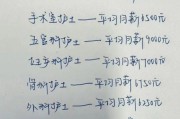 手术室护士——平均月薪6500元
五官科护士——平均月薪9000元
妇产科护士——平均月薪7000元
骨科护士——平均月薪6750元
外科护士——平均月薪6250元